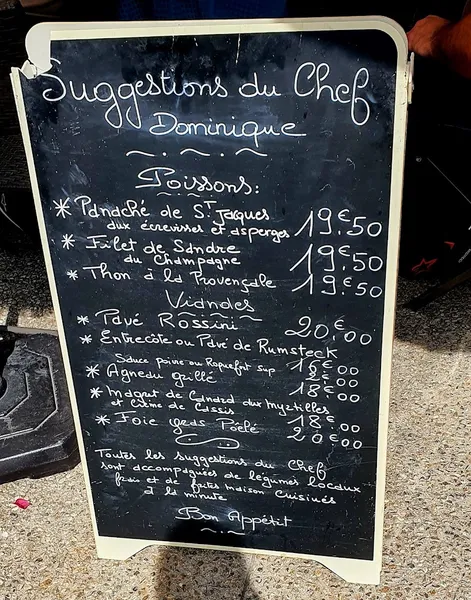 Suggestions du Chef
Dominique
Poissons:
* Panaché de St Jacques
aux écrevisses et asperges 19€50
* Filet de Sandre
au Champagne 19€50
* Thon à la Provençale 19€50
Viandes
* Pavé Rossini 20€00
* Entrecôte ou Pavé de Rumsteck 16€00
Sauce poivre ou Roquefort sup €00
* Agneau grillé 18€00
* Magret de Canard aux myrtilles
et Crème de Cassis 18€00
* Foie gras Poêlé 20€00
Toutes les suggestions du Chef
sont accompagnées de légumes locaux
frais et de frites maison cuisinés
à la minute
Bon Appétit